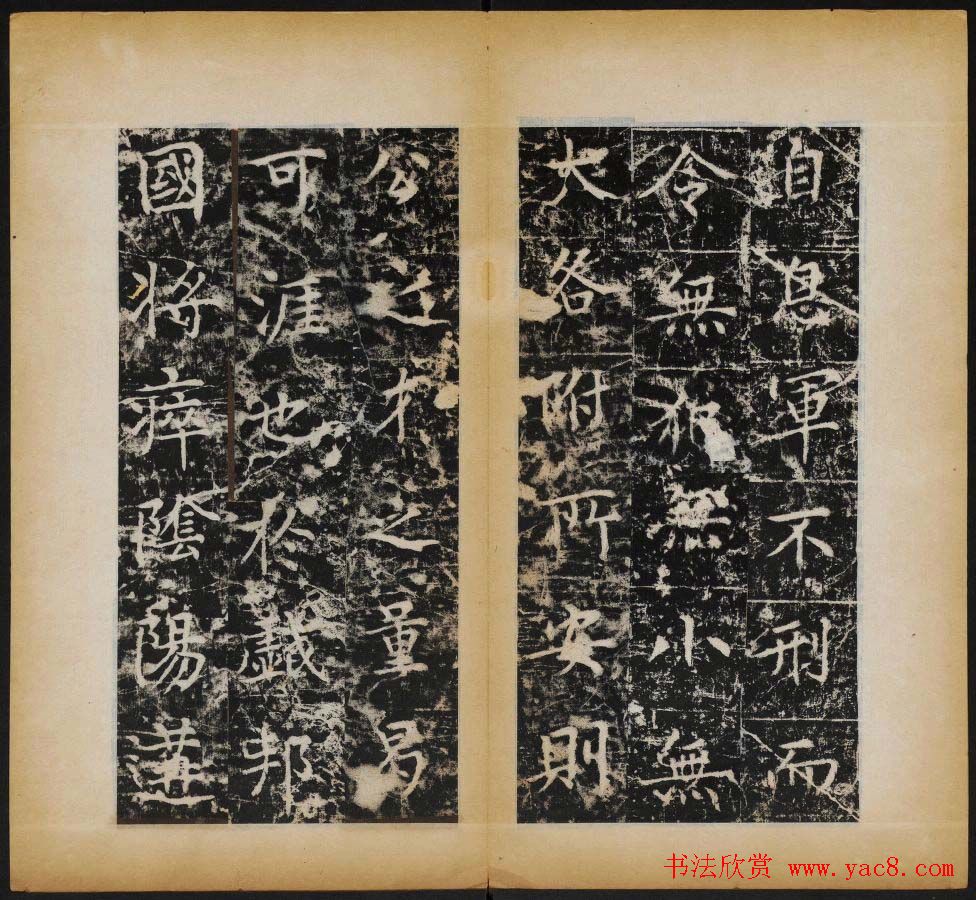 自息軍不刑而
令無犯無小無
大各附所安則
公之才之量曷
可涯也於戲邦
國將瘁陰陽遘
书法欣赏 www.yac8.com